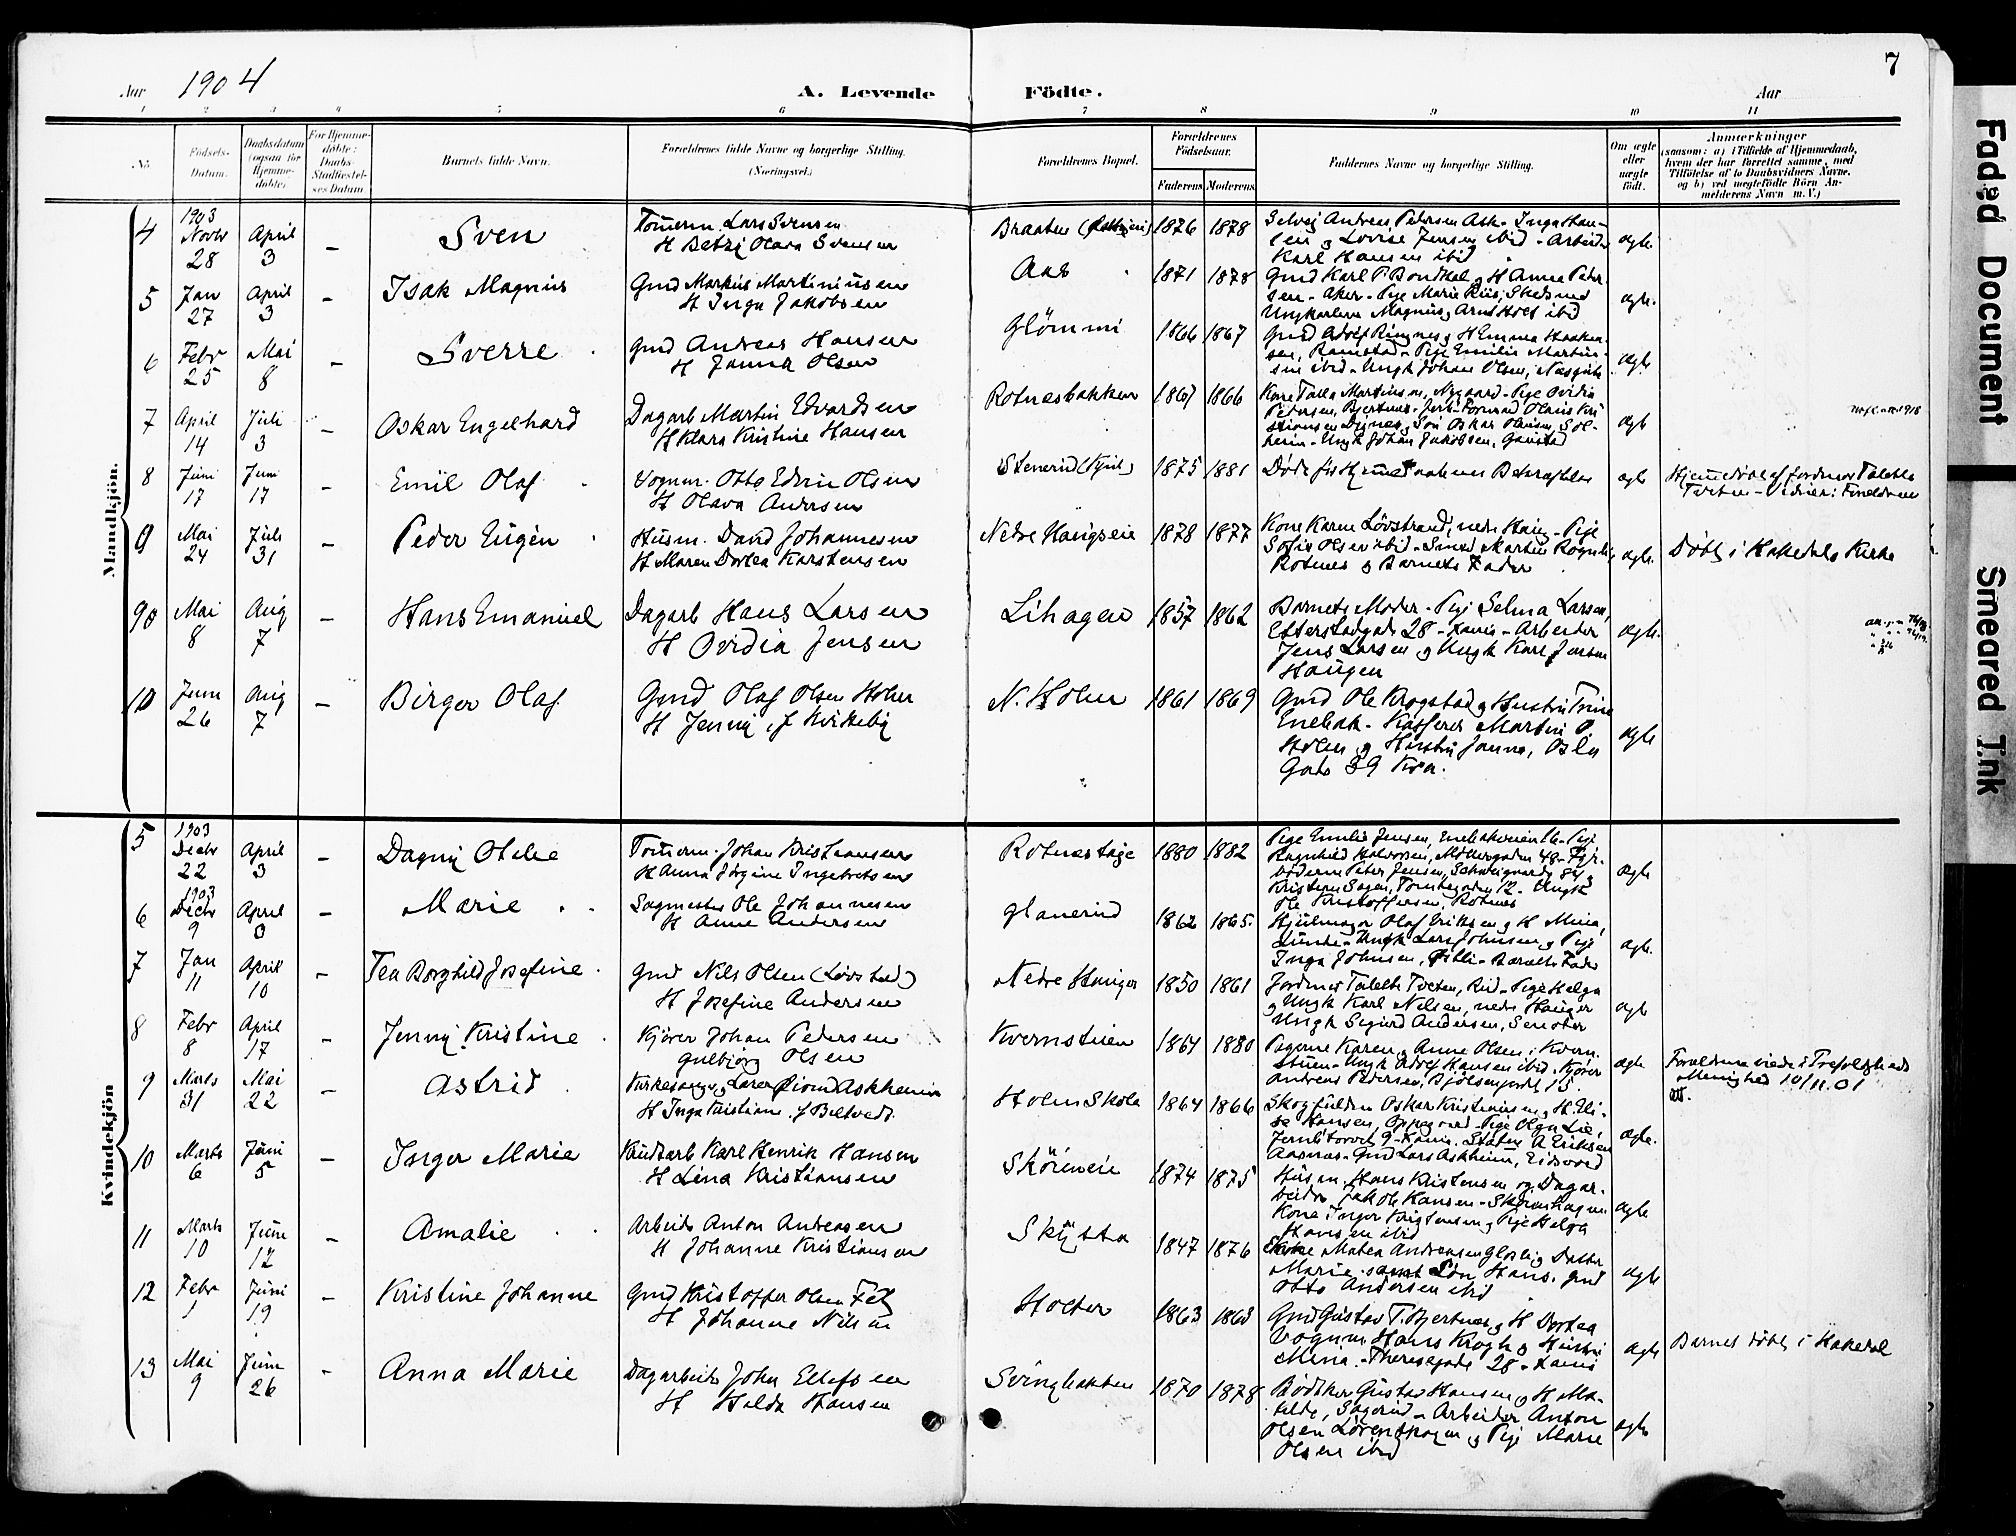 7
Aar 1904 A. Levende Födte. Aar
1 2 3 4 5 6 7 8 9 10 11
No. Födsels-Datum. Daabsdatum (ogsaa for Hjemme-döbte). For Hjemme-döbte: Daabs-Stadfæstel-ses Datum Barnets fulde Navn. Forældrenes fulde Navne og borgerlige Stilling. (Næringsvei.) Forældrenes Bopæl. Forældrenes Födselsaar. Faderens Moderens Faddernes Navne og borgerlige Stilling. Om ægte eller uægte födt. Anmærkninger
(saasom: a) i Tilfælde af Hjemmedaab,
hvem der har forrettet samme, med
Tilföielse af to Daabsvidners Navne,
og b) ved uægtefödte Börn An-
melderens Navn m. V.)
Mandkjön.
4 1903 Novbr 28 April 3 – Sven
Tömerm Lars Svensen
H Betzi Olava Svensen
Braaten 1876 1878
Selvej Andreas Petersen Ask - Inga Han-
sen og Lovise Jensen ibid - Arbeider
Karl Hansen ibid
ægte
5 Jan 27 April 3 – Isak Magnus
Gmd Markus Martiniusen
H Inga Jakobsen
Aas 1871 1878
Gmd Karl P Bondkal og H Anne Peter-
sen - Aker - Pige Marie Riis, Skedsmo
Ungkarlene Magnus og Arnt Holt ibid
ægte.
6 Febr 25 Mai 8 – Sverre
Gmd Andreas Hansen
H Janna Olsen
Glömmi 1866 1867
Gmd Adolf Ringnes og H Emma Haaken-
sen, Ramstad - Pige Emilie Martin-
sen ibid - Ungk Johan Olsen,
ægte.
7 April 14 Juli 3 – Oskar Engelhard
Dagarb Martin Edvardsen
H Klara Kristine Hansen
Rotnesbakken 1867 1866
Kone Talla Martinsen, Nygaard - Pige Ovidia
Pedersen, Bjertnes - Jernb Formand Olaus Kri
stiansen Dignes, Søn Oskar Olausen, Sol-
heim - Ungk Johan Jakobsen, Gaustad
ægte
8 Juni 17 Juni 17 – Emil Olaf
Vognm. Otto Edvin Olsen
H Olava Andersen
Stenerud 1875 1881
Døde før Hjemmedaabens Bekræftelse
ægte
Hjemmedøbt af fordums Taletta
Tveten - Vidner: Forældrene
9 Mai 24 Juli 31 – Peder Eugen
Husm. David Johannesen
H Maren Dortea Karstensen
Nedre Haugseie 1878 1877
Kone Karen Løvstrand, nedre Haug - Pige
Sofie Olsen ibid - Smed Martin Rognli,
Rotnes og Barnets Fader
ægte.
Døbt i Hakedals Kirke
90 Mai 8 Aug 7 – Hans Emanuel
Dagarb Hans Larsen
H Ovidia Jensen
Lihagen 1857 1862
Barnets Moder - Pige Selma Larsen,
Etterstadgade 28 - Kania - Arbeider
Jens Larsen og Ungk Karl Jensen
Haugen
ægte.
10 Juni 26 Aug 7 – Birger Olaf
Gmd Olaf Olsen Holm
H Jenny, f Kvikeby
N. Holm 1861 1869
Gmd Ole Krogstad og Hustru Trine
Enebak - Kasserer Martin P
Holm og Hustru Janna, Oslo
Gate 39 Kra.
ægte
Kvindekjön
5 1903 Decbr 22 April 3 – Dagny Otelie
Tömerm. Johan Kristiansen
H Anna Jørgine Ingebretsen
Rotnestajе 1880 1882
Pige Emilie Jensen, Enebakveien 16 - Pige
Ragnhild Halvorsen, Møllergaden 48 - Typ-
bøderen Peter Jensen, Schweigaards 84 og
Kristian Sagen, Tomtegaden 12 - Ungk
Ole Kristoffersen, Rotnes
ægte
6 1903 Decbr 9 April 3 – Marie
Sagmester Ole Johannesen
H Anne Andersen
Glanerud 1862 1865
Hjulmager Olaf Eriksen og H Mina,
Lunde - Ungk Lars Johnsen og Pige
Inga Johnsen, - Barnets Fader
ægte.
7 Jan 11 April 10 – Tea Borghild Josefine
Gmd Nils Olsen (Løvstad)
H Josefine Andersen
Nedre Hauger 1850 1861
Jordmor Taletta Tveten, Rud - Pige Helga
og Ungk Karl Nilsen, nedre Hauger
Ungk Sigurd Andersen, Senober
ægte
8 Febr 8 April 17 – Jenny Kristine
Kjører Johan Pedersen
Gulbjørg Olsen
Kvernstuen 1864 1880
Pigerne Karen og Anne Olsen, Kvern-
stuen - Ungk Adolf Hansen ibid - Kjører
Andreas Pedersen, Bjølsengade 15
ægte
Forældrene viede i Trefoldigheds
Menighed 10/11.01
9 Marts 31 Mai 22 – Astrid
Kirkesanger og Lærer Eivind Askheim
H Inga Kristiane, f Beltvedt
Holm Skole 1864 1866
Skogfuldm Oskar Kristiansen og H Eli-
se Hansen, Oppegaard - Pige Olga Lie,
Jernb torvet 9 - Kania. Statsm A Eriksen
Aasnæs - Gmd Lars Askheim, Eidsvold
ægte.
10 Marts 6 Juni 5 – Inger Marie
Kundtarb Karl Henrik Hansen
H Lina Kristiansen
Skøieneie 1874 1875
Husm. Hans Kristensen og Dagar-
beider Jakob Hansen - Skøienhagen
Kone Inger Kristensen og Pige Helga
Hansen ibid
ægte
11 Marts 10 Juni 12 – Amalie
Arbeider Anton Andreasen
H Johanne Kristiansen
Skytta 1847 1876
Enke Matea Andreasen Glosli og Datter
Marie samt Søn Hans. Gmd
Otto Andersen ibid
ægte
12 Febr 1 Juni 19 – Kristine Johanne
Gmd Kristoffer Olsen
H Johanne Nilsen
Holter 1863 1863
Gmd Gustav T. Bjertnes og H Dortea
Vognm Hans Krogh og Hustru
Mina - Theresegade 28 - Kania
ægte
Barnet døbt i Hakedal
13 Mai 9 Juni 26 – Anna Marie
Dagarbeider John Ellefsen
H Hilda Hansen
Svingbakken 1870 1878
Bødker Gustav Hansen og H Ma-
tilde, Sagerud - Arbeider Anton
Olsen Lørenskogen og Pige Marie
Olsen ibid
ægte
Faded Document
Smeared Ink